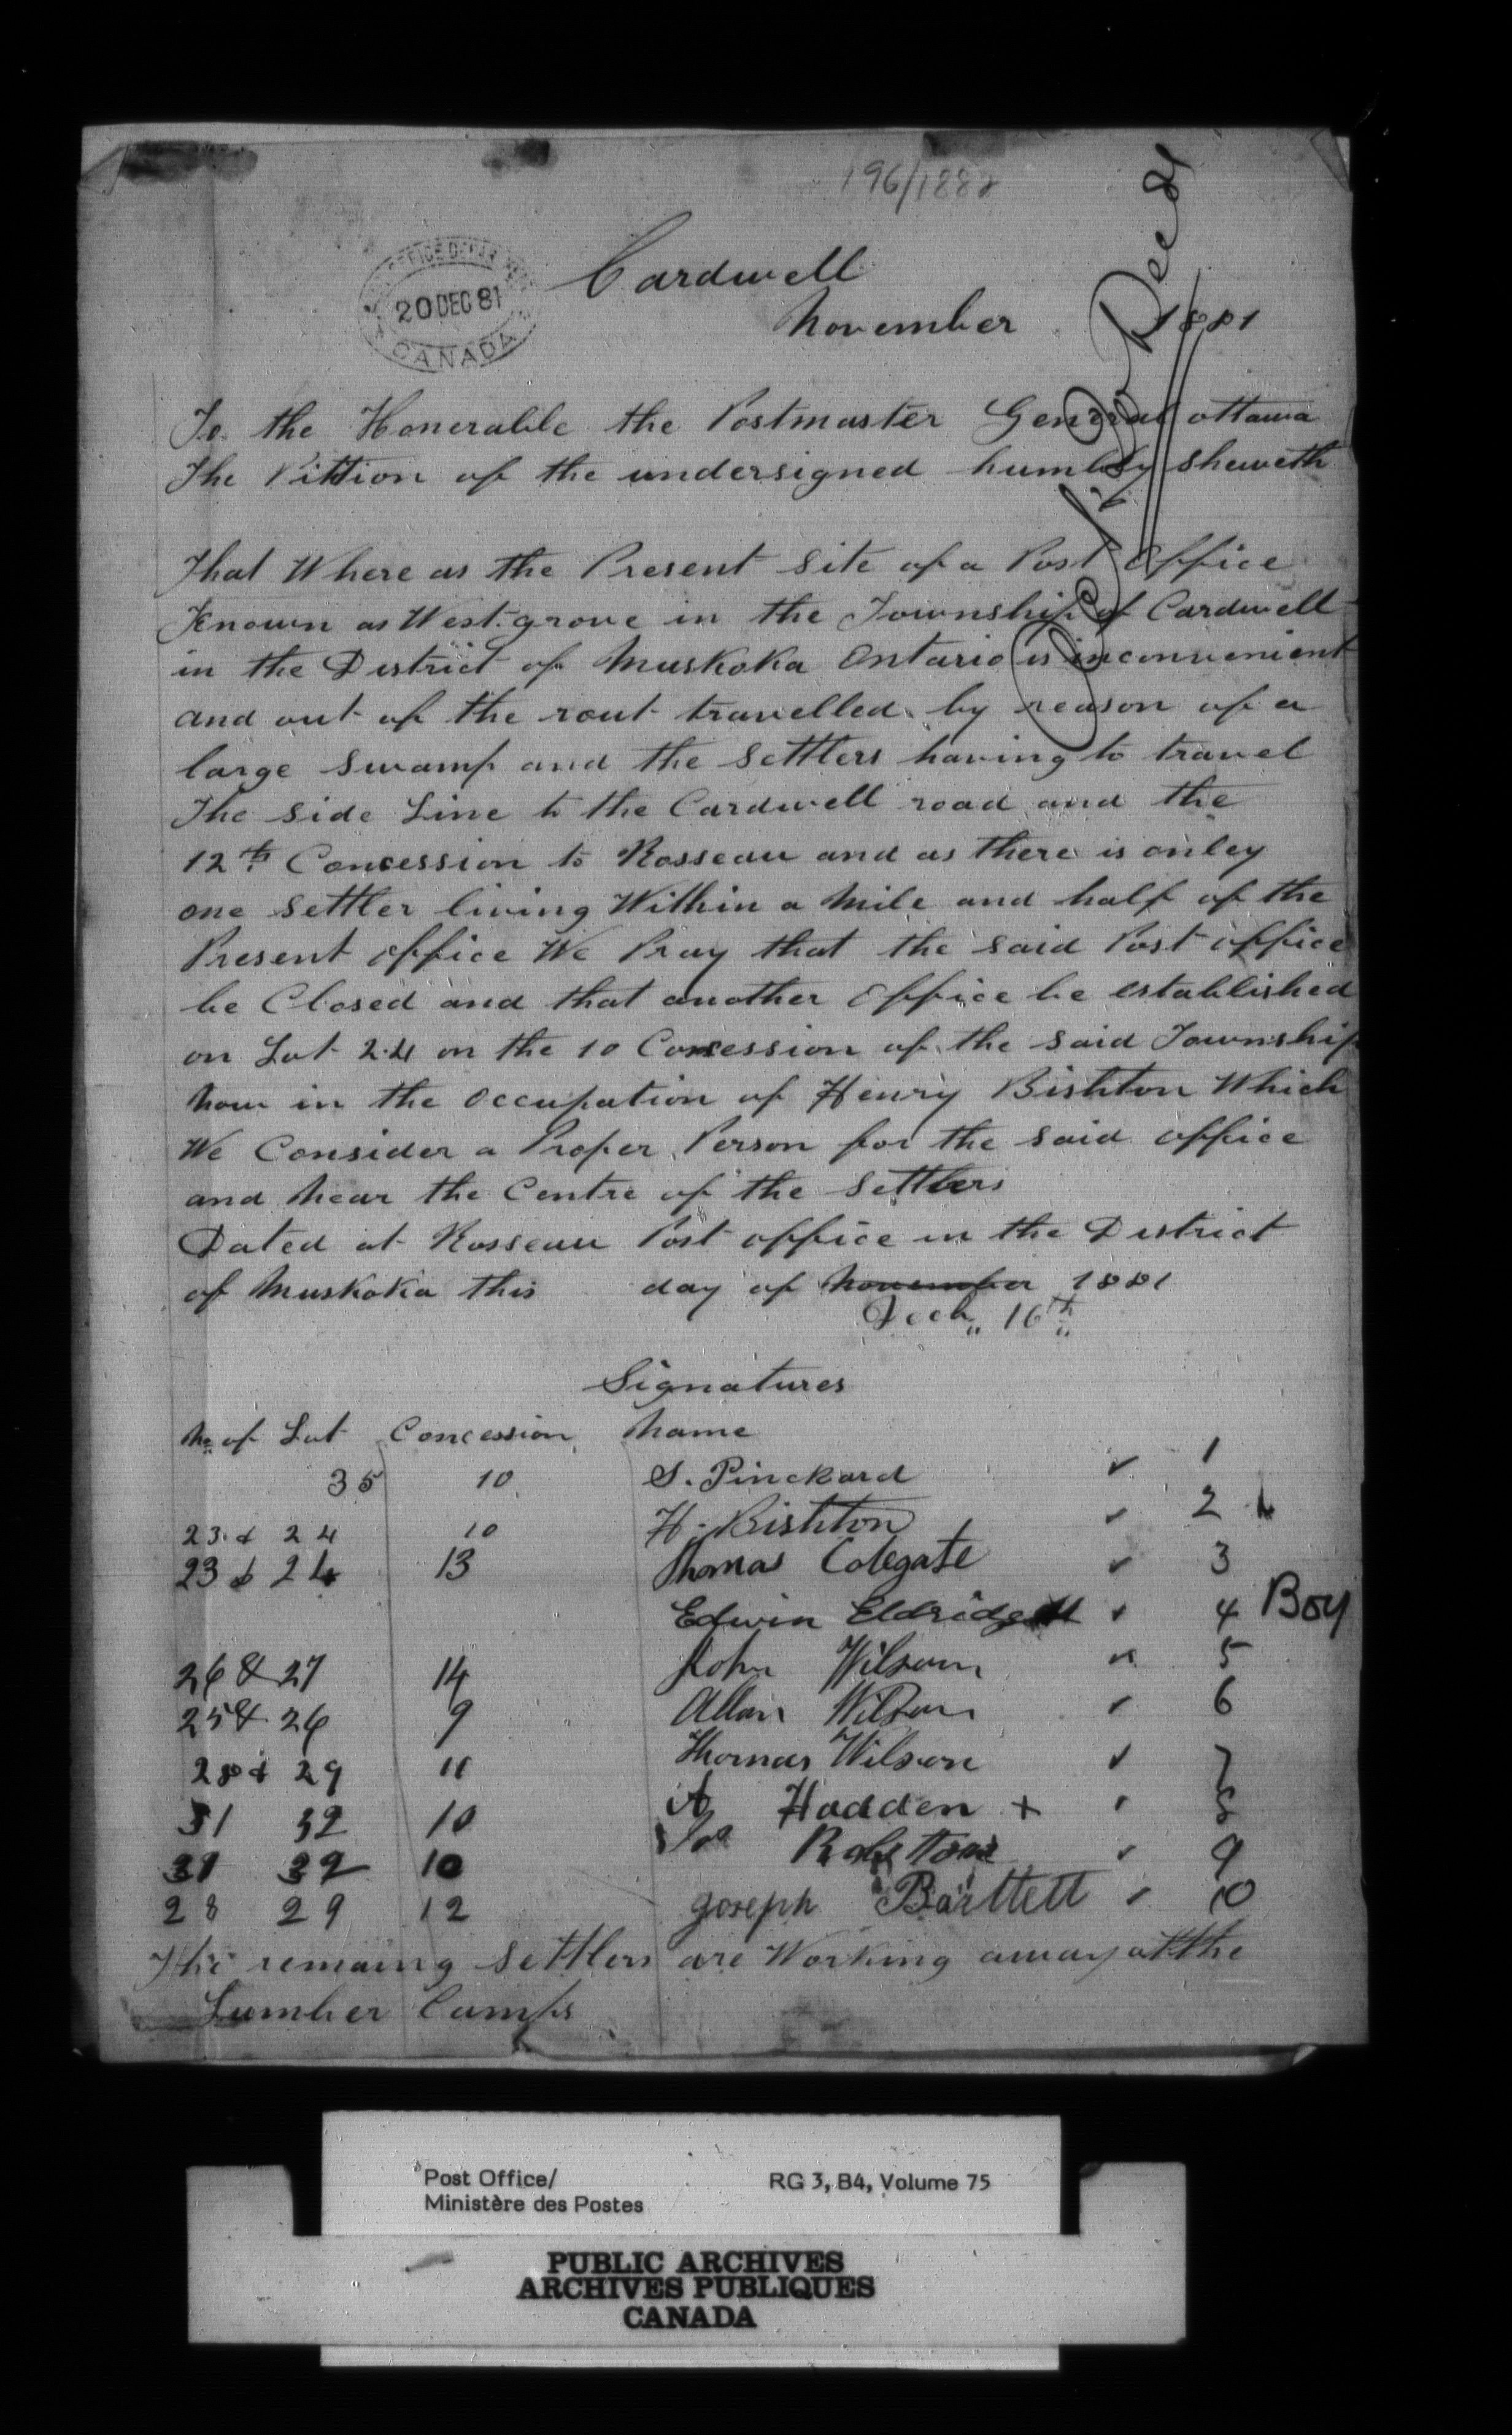 196/1882
POST OFFICE DEPARTMENT
20 DEC 81
CANADA
Cardwell
November 1881
Dec 81
To the Honerable the Postmaster General ottawa
The Pittion of the undersigned humbly sheweth
That Where as the Present Site of a Post office
Known as West-grove in the Township of Cardwell
in the District of Muskoka Ontario is inconvenient
and out of the rout travelled by reason of a
large Swamp and the Settlers having to travel
The Side Line to the Cardwell road and the
12th Concession to Rosseau and as there is onley
one Settler living Within a Mile and half of the
Present office We Pray that the said Post office
be Closed and that another office be established
on Lot 24 on the 10 Concession of the said Township
now in the occupation of Henry Bishton Which
We Consider a Proper Person for the said office
and near the Centre of the Settlers
Dated at Rosseau Post office in the District
of Muskoka this day of November 1881
Dech 16th
Signatures
No of Lot Concession Name
35 10 S. Pinckard 1
23 & 24 10 H. Bishton 2
23 & 24 13 Thomas Colegate 3
Edwin Eldridge 4 Boy
26 & 27 14 John Wilson 5
25 & 26 9 Allan Wilson 6
28 & 29 11 Thomas Wilson 7
31 32 10 A Hadden + 8
31 32 10 9
28 29 12 Joseph Bartlett 10
The remaing Settlers are Working away at the
Lumber Camps
Post Office/ RG 3, B4, Volume 75
Ministère des Postes
PUBLIC ARCHIVES
ARCHIVES PUBLIQUES
CANADA